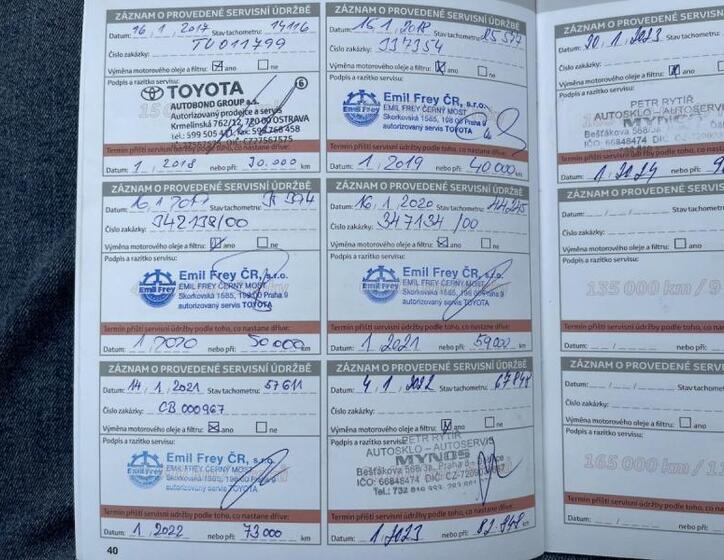 ZÁZNAM O PROVEDENÉ SERVISNÍ ÚDRŽBĚ
Datum: 16, 1, 2017 Stav tachometru: 14116
Číslo zakázky: TU011799
Výměna motorového oleje a filtru: ano ne
Podpis a razítko servisu:
6
TOYOTA
AUTOBOND GROUP a.s.
Autorizovaný prodejce a servis
Krmelínská 762/12, 720 00 OSTRAVA
DIČ: CZ27567575
Termín příští servisní údržby podle toho, co nastane dříve:
Datum: 1, 2018 nebo při: 30.000 km
ZÁZNAM O PROVEDENÉ SERVISNÍ ÚDRŽBĚ
Datum: 1, 2018 Stav tachometru: 25 577
Číslo zakázky: 337354
Výměna motorového oleje a filtru: ano ne
Podpis a razítko servisu:
Emil Frey ČR, s.r.o.
EMIL FREY ČERNÝ MOST
Skorkovská 1585, 198 00 Praha 9
autorizovaný servis TOYOTA
Emil Frey
Termín příští servisní údržby podle toho, co nastane dříve:
Datum: 1, 2019 nebo při: 40 000 km
ZÁZNAM O PROVEDENÉ SERVISNÍ ÚDRŽBĚ
Datum: 16, 1 Stav tachometru:
Číslo zakázky: 342138/00
Výměna motorového oleje a filtru: ano ne
Podpis a razítko servisu:
Emil Frey ČR, s.r.o.
EMIL FREY ČERNÝ MOST
Skorkovská 1585, 198 00 Praha 9
autorizovaný servis TOYOTA
Emil Frey
Termín příští servisní údržby podle toho, co nastane dříve:
Datum: 1, 2020 nebo při: 50 000 km
ZÁZNAM O PROVEDENÉ SERVISNÍ ÚDRŽBĚ
Datum: 16, 1, 2020 Stav tachometru: 44245
Číslo zakázky: 347134/00
Výměna motorového oleje a filtru: ano ne
Podpis a razítko servisu:
Emil Frey ČR, s.r.o.
EMIL FREY ČERNÝ MOST
Skorkovská 1585, 198 00 Praha 9
autorizovaný servis TOYOTA
Emil Frey
Termín příští servisní údržby podle toho, co nastane dříve:
Datum: 1, 2021 nebo při: 59000 km
ZÁZNAM O PROVEDENÉ SERVISNÍ ÚDRŽBĚ
Datum: 14, 1, 2021 Stav tachometru: 57611
Číslo zakázky: CB 000967
Výměna motorového oleje a filtru: ano ne
Podpis a razítko servisu:
Emil Frey ČR, s.r.o.
EMIL FREY ČERNÝ MOST
Skorkovská 1585, 198 00 Praha 9
autorizovaný servis TOYOTA
Emil Frey
Termín příští servisní údržby podle toho, co nastane dříve:
Datum: 1, 2022 nebo při: 73000 km
40
ZÁZNAM O PROVEDENÉ SERVISNÍ ÚDRŽBĚ
Datum: 4, 1, 2022 Stav tachometru: 67848
Číslo zakázky:
Výměna motorového oleje a filtru: ano ne
Podpis a razítko servisu:
PETR RYTÍŘ
AUTOSKLO - AUTOSERVIS
MYNOS
Bešťákova 568/3a, Praha 8
IČO: 66848474
Termín příští servisní údržby podle toho, co nastane dříve:
Datum: 1, 2023 nebo při: 82.848 km
ZÁZNAM O PROVEDENÉ
Datum: 20, 1, 2023
Číslo zakázky:
Výměna motorového oleje a filtru:
Podpis a razítko servisu:
PETR RYTÍŘ
AUTOSKLO - AUTOSERVIS
MYNOS
IČO: 66848474
Termín příští servisní údržby podle
Datum: 1, 2024 nebo při:
ZÁZNAM O PROVEDENÉ SERVISNÍ
Datum: Stav
Číslo zakázky:
Výměna motorového oleje a filtru: ano
Podpis a razítko servisu:
135 000 km / 9
Termín příští servisní údržby podle toho, co
Datum: nebo při:
ZÁZNAM O PROVEDENÉ SERVISN
Datum: Stav
Číslo zakázky:
Výměna motorového oleje a filtru:
Podpis a razítko servisu:
165 000 km / 11
Termín příští servisní údržby podle toho, co n
Datum: nebo při: